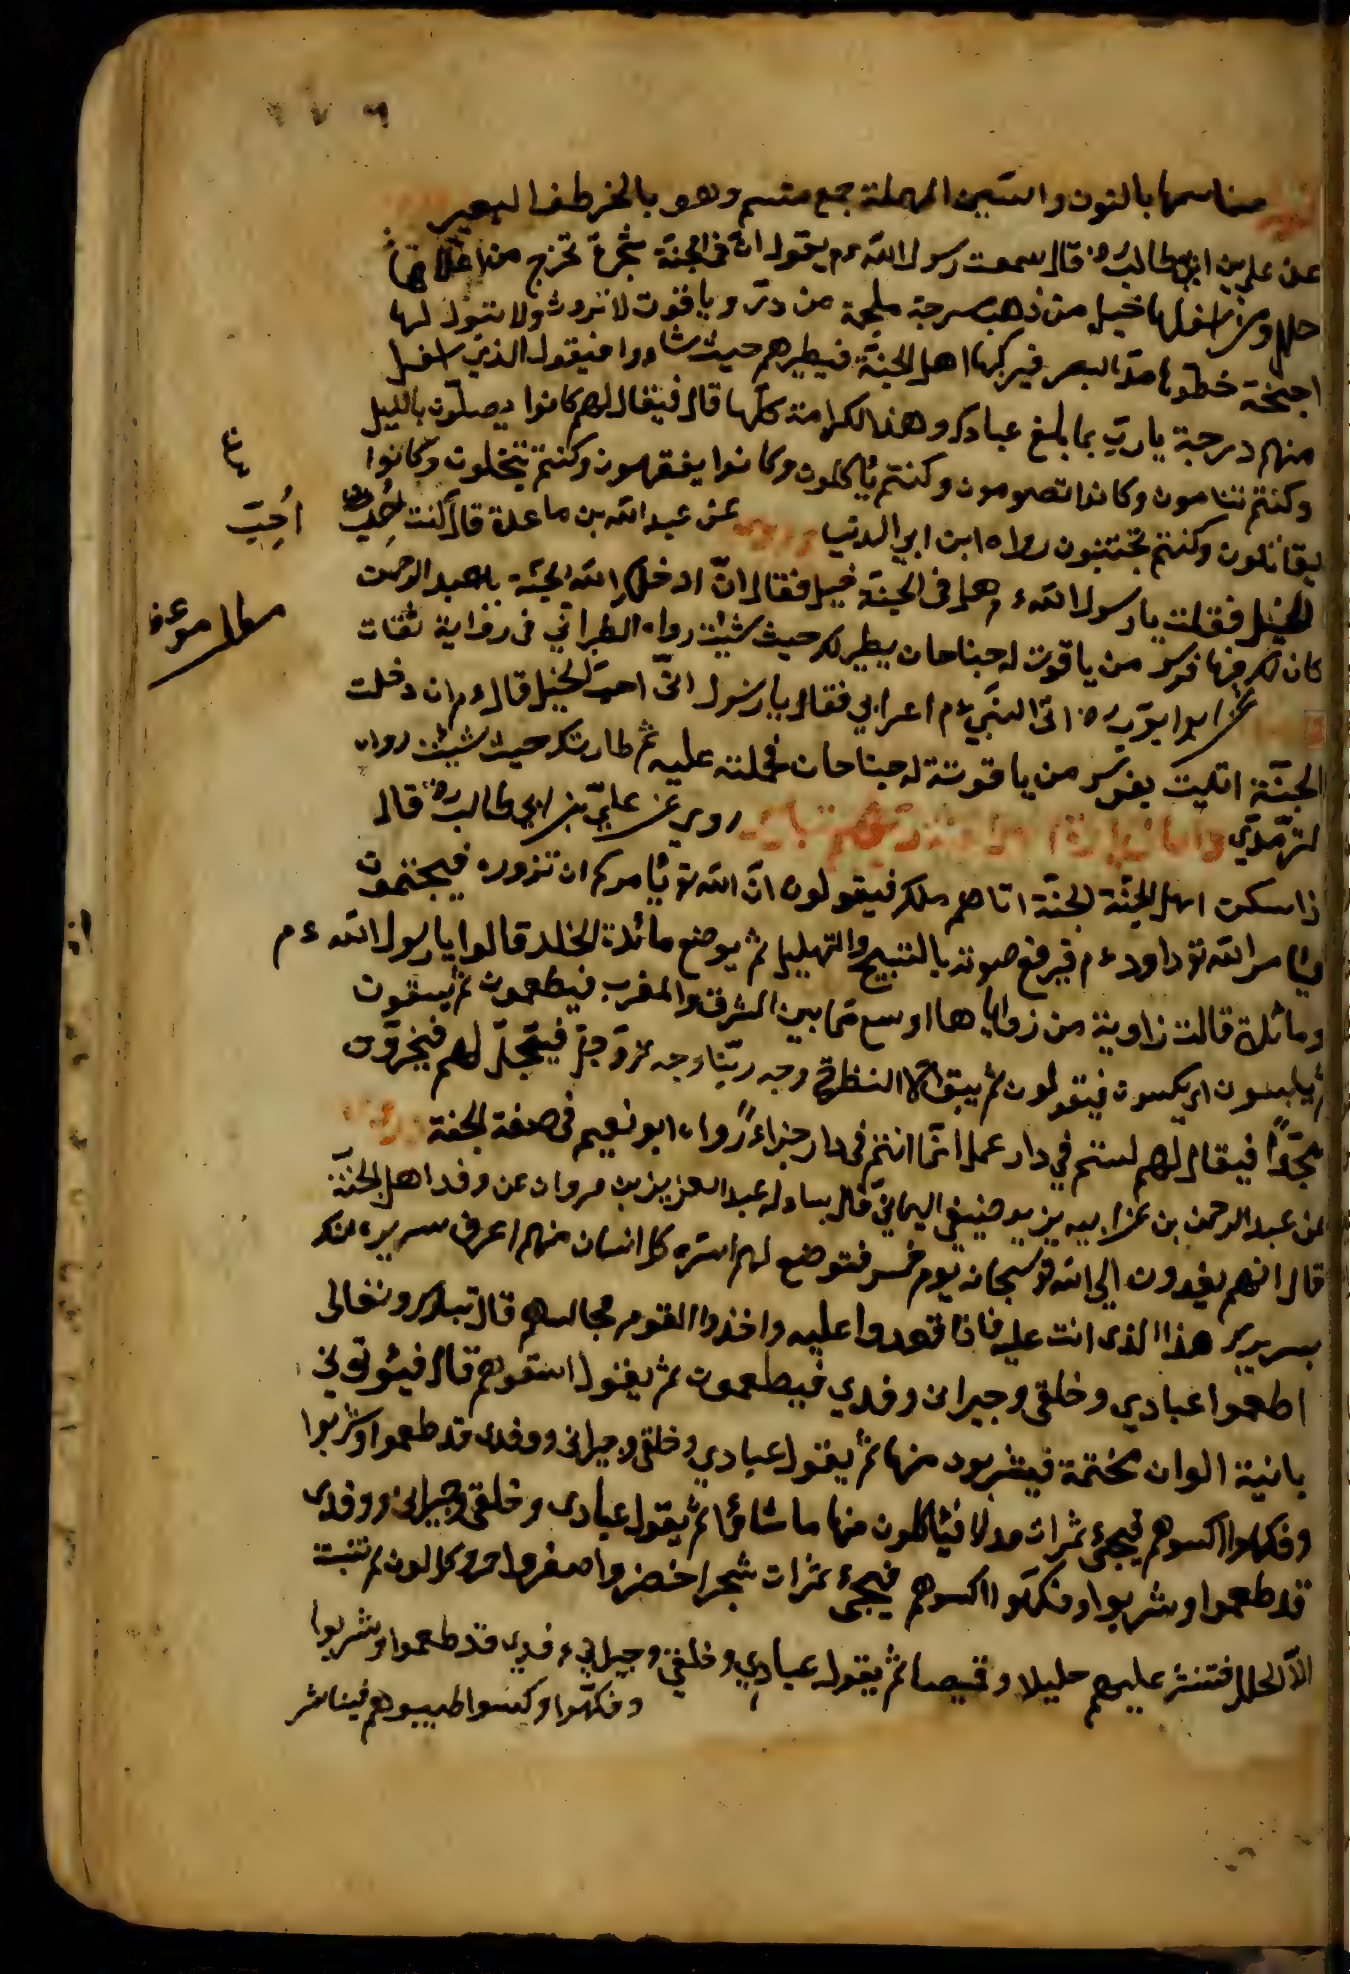 مناسمها بالنون والسين المهملة جمع منسم وهو بالخرطف البعير
عن علي بن ابي طالب رض قال سمعت رسول الله ءم يقول ان في الجنة شجرة تخرج من اعلاها
حلل ومن اسفلها خيل من ذهب سرجة ملجمة من در وياقوت لا تروث ولا تبول لها
اجنحة خطوها مد البصر فيركبها اهل الجنة فيطيرهم حيث شاوروا فيقول الذي اسفل
منهم درجة يا رب بما بلغ عبادك وهذا الكرامة كلها قال فيقال لهم كانوا يصلون بالليل
وكنتم تنامون وكانوا تصومون وكنتم يأكلون وكانوا ينفقون وكنتم تبخلون وكانوا
يقاتلون وكنتم تجتنبون رواه ابن ابي الدنيا وروي عن عبد الله بن ماعدة قال كنت احب
الخيل فقلت يا رسول الله ءم هل في الجنة خيل فقال ان ادخلك الله الجنة يا عبد الرحمن
كان لك فيها فرس من ياقوت له جناحان يطير لك حيث شئت رواه الطبراني في رواية ثقات
عن ابو ايوب رض اتى النبي ءم اعرابي فقال يا رسول اني احب الخيل قال ءم ان دخلت
الجنة اتيت بفرس من ياقوتة له جناحان فحملته عليه ثم طار بك حيث شئت رواه
الترمذي روي عن علي بن ابي طالب رض قال
اذا سكن اهل الجنة الجنة اتاهم ملك فيقولون ان الله تع يأمركم ان تزوره فيجتمعون
ويأمر الله تع داود ءم فيرفع صوته بالتسبيح والتهليل ثم يوضع مائدة الخلد قالوا يا رسول الله ءم
وما مائدة قالت زاوية من زواياها اوسع مما بين المشرق والمغرب فيطعمون ثم يسقون
ثم يلبسون اي يكسون فيقولون لم يبق الا النظر في وجه ربنا وجه عز وجل فيتجلى لهم فيخرون
سجدا فيقال لهم لستم في دار عمل انما انتم في دار جزاء رواه ابو نعيم في صفة الجنة وروي
عن عبد الرحمن بن عن ابيه يزيد صيفي اليماني قال ساءله عبد العزيز بن مروان عن وفد اهل الجنة
قال انهم يفدون الى الله تع سبحانه يوم خمس فتوضع لهم اسره كل انسان منهم اعرف سريره منك
بسريرك هذا الذي انت عليه فاذا قعدوا عليه واخذوا القوم مجالسهم قال تبارك وتعالى
اطعموا عبادي وخلقي وجيراني وفدي فيطعمون ثم يقول اسقوهم قال فيؤتوني
بانية الوان مختمة فيشربون منها ثم يقول عبادي وخلقي وجيراني ووفدي قد طعموا وشربوا
وفكهوا اكسوهم فيجئ ثمرات مدلا فيأكلون منها ما شاؤا ثم يقول عبادي وخلقي وجيراني ووفدي
قد طعموا وشربوا وفكهوا اكسوهم فيجئ ثمرات شجر اخضر واصفر واحمر وكل لون لم تنبت
الا الحلل فتنشر عليهم حليلا وقميصا ثم يقول عبادي وخلقي وجيراني وفدي قد طعموا وشربوا
وفكهوا وكسوا طيبوهم فيناشر
احب